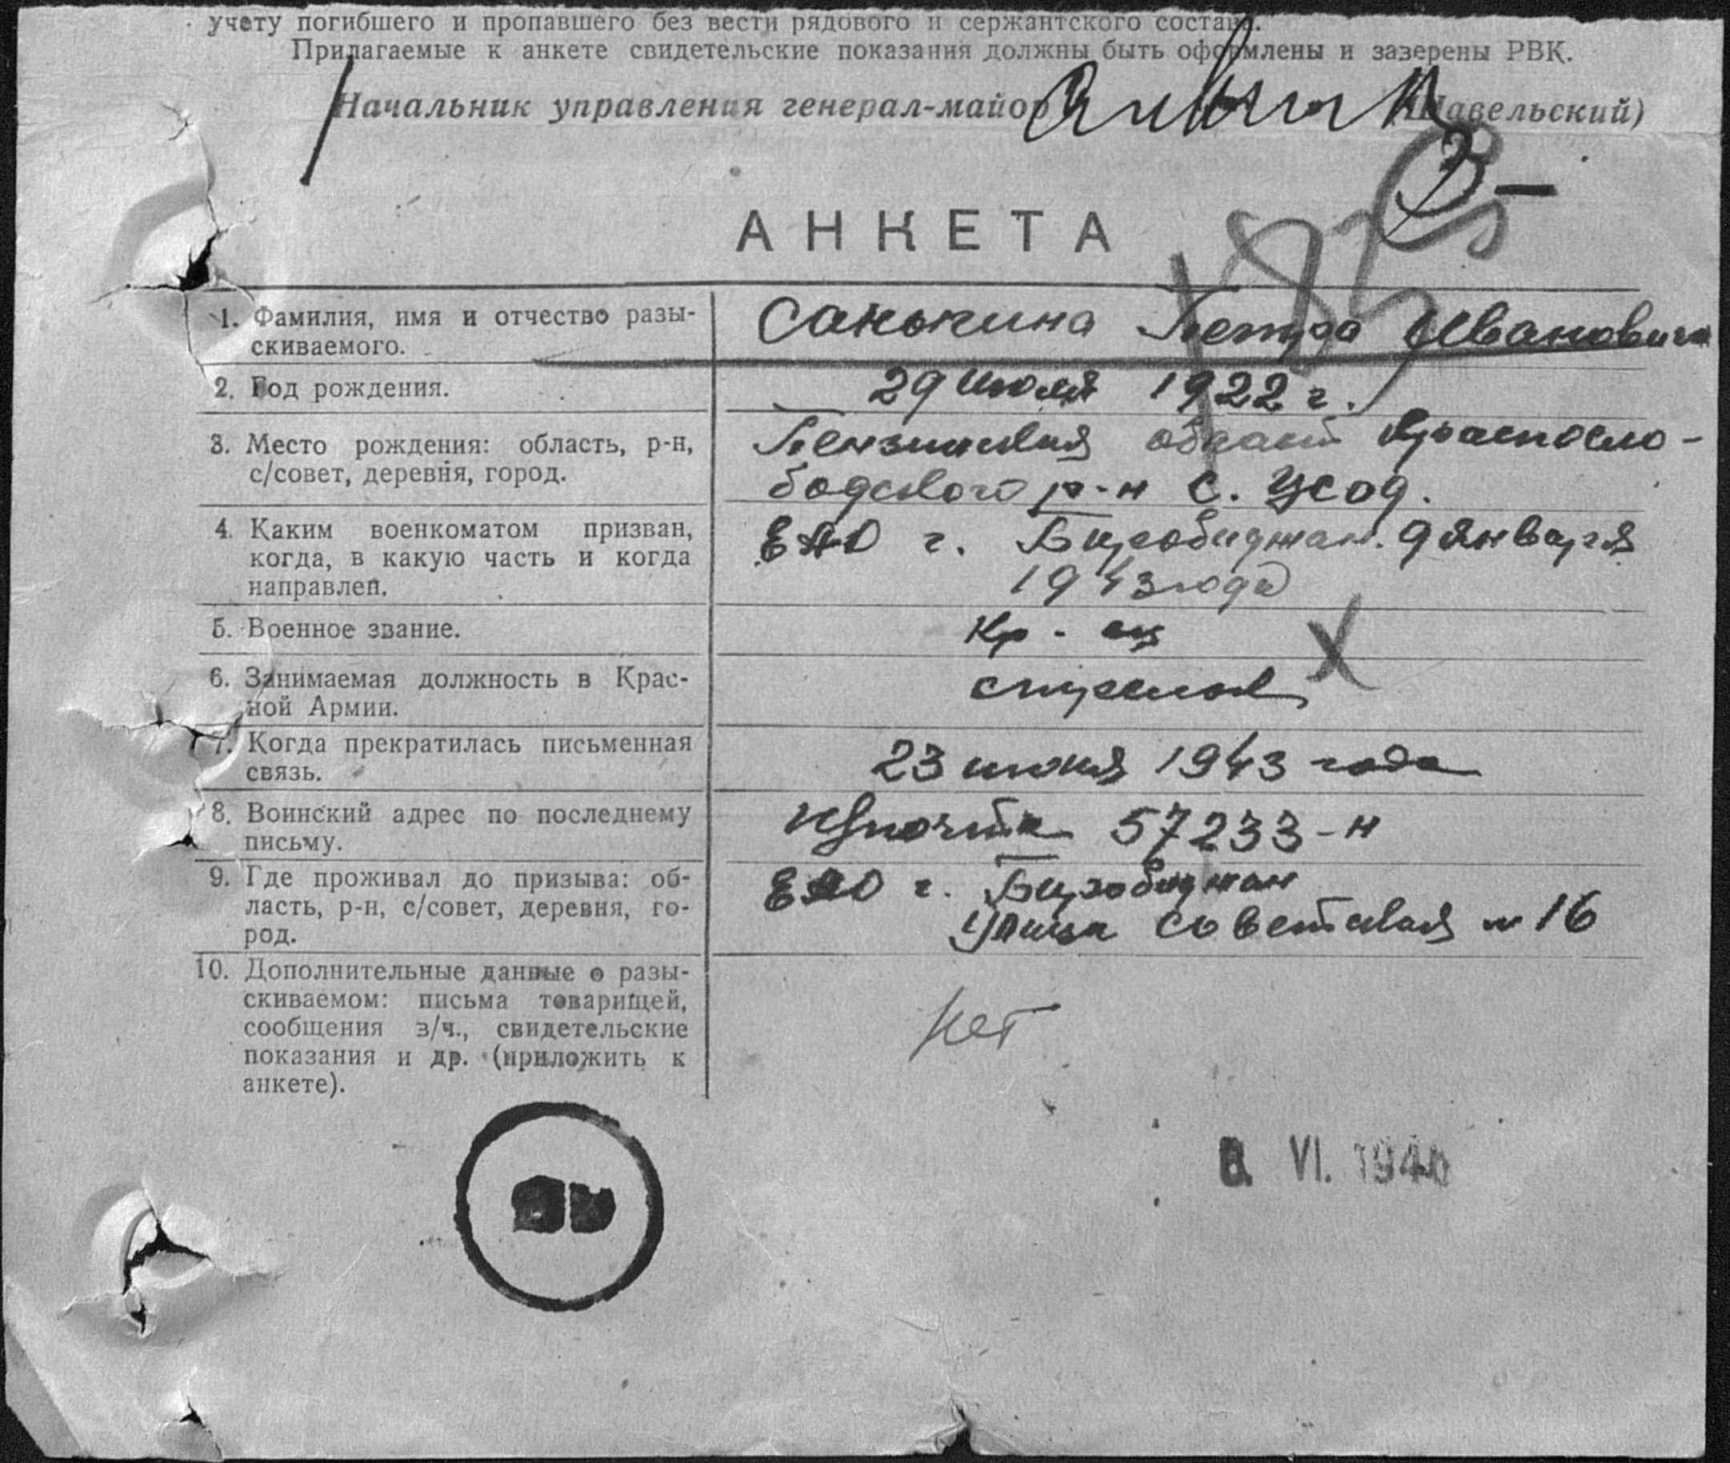 учету погибшего и пропавшего без вести рядового и сержантского состава.
Прилагаемые к анкете свидетельские показания должны быть оформлены и заверены РВК.
Начальник управления генерал-майор (Шавельский)
АНКЕТА
1. Фамилия, имя и отчество разы-
скиваемого.
Санькина Петра Ивановича
2. Год рождения.
29 июля 1922 г.
3. Место рождения: область, р-н,
с/совет, деревня, город.
Пензинская област Краснosло-
бодского р-н с. Усад.
4. Каким военкоматом призван,
когда, в какую часть и когда
направлен.
ЕАО г. Биробиджан. 9 января
1943 года
5. Военное звание.
Кр-ец
6. Занимаемая должность в Крас-
ной Армии.
стрелок
7. Когда прекратилась письменная
связь.
23 июня 1943 года
8. Воинский адрес по последнему
письму.
почта 57233-н
9. Где проживал до призыва: об-
ласть, р-н, с/совет, деревня, го-
род.
ЕАО г. Биробиджан
Улица Советская № 16
10. Дополнительные данные о разы-
скиваемом: письма товарищей,
сообщения з/ч., свидетельские
показания и др. (приложить к
анкете).
Нет
VI. 194